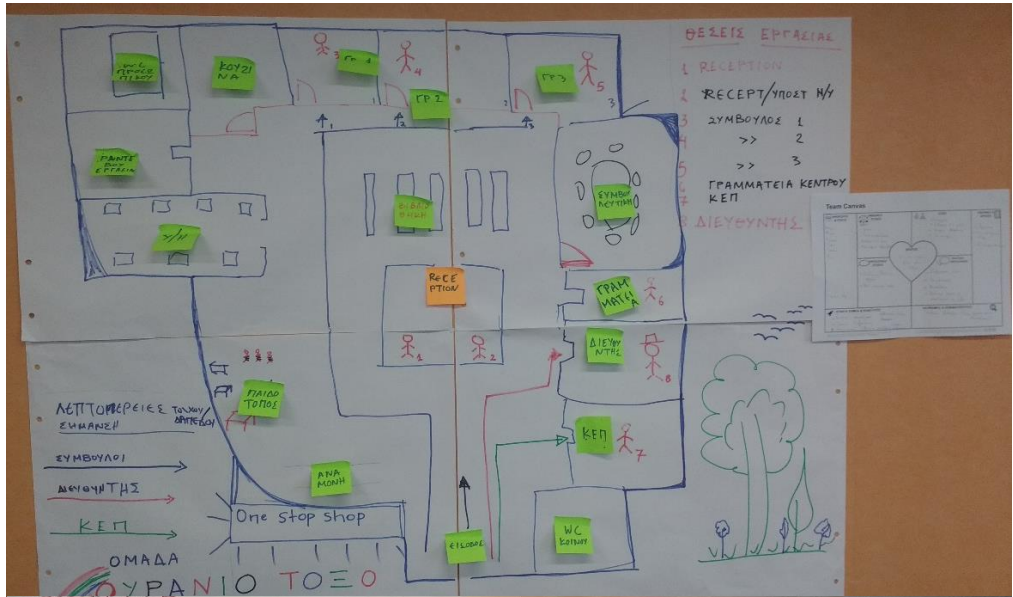 WC
ΠΡΟΣΩ
ΠΙΚΟΥ
ΚΟΥΖΙ
ΝΑ
ΓΡ. 1
3
4
ΓΡ. 2
ΓΡ. 3
5
1
2
3
ΘΕΣΕΙΣ ΕΡΓΑΣΙΑΣ
1 RECEPTION
2 RECEPT/ΥΠΟΣΤ Η/Υ
3 ΣΥΜΒΟΥΛΟΣ 1
4 >> 2
5 >> 3
6 ΓΡΑΜΜΑΤΕΙΑ ΚΕΝΤΡΟΥ
7 ΚΕΠ
8 ΔΙΕΥΘΥΝΤΗΣ
ΡΑΝΤΕ
ΒΟΥ
ΕΡΓΑΣΙΑ
Υ/Η
ΒΙΒΛΙΟ
ΘΗΚΗ
ΣΥΜΒΟ
ΛΕΥΤΙΚΗ
Team Canvas
RECE
PTION
ΓΡΑΜ
ΜΑΤΕΙΑ
6
1
2
ΔΙΕΥΘΥ
ΝΤΗΣ
8
ΠΑΙΔΟ
ΤΟΠΟΣ
ΚΕΠ
7
ΛΕΠΤΟΜΕΡΕΙΕΣ ΤΟΙΧΟΥ/
ΣΗΜΑΝΣΗ ΔΑΠΕΔΟΥ
ΣΥΜΒΟΥΛΟΙ
ΔΙΕΥΘΥΝΤΗΣ
ΚΕΠ
ΑΝΑ
ΜΟΝΗ
One stop shop
ΕΙΣΟΔΟΣ
WC
ΚΟΙΝΟΥ
ΟΜΑΔΑ
ΟΥΡΑΝΙΟ ΤΟΞΟ